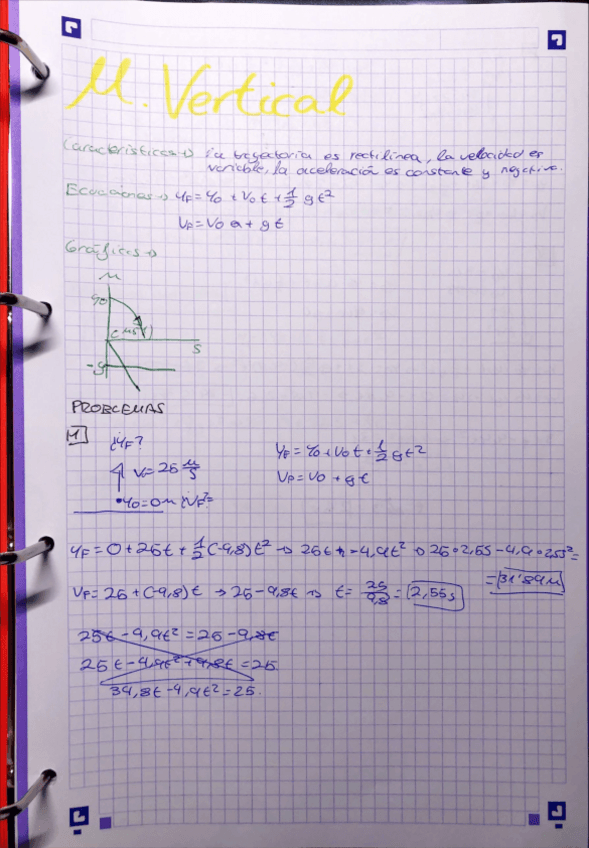 M. Vertical
Características → la trayectoria es rectilínea, la velocidad es
variable, la aceleración es constante y negativa.
Ecuaciones → YF = Y0 + V0 t + 1/2 g t²
VF = V0 + g t
Gráficas →
M
Y0
S
-g
PROBLEMAS
11
¿YF?
V = 25 M/S
Y0 = 0 M ¿VF?=
YF = Y0 + V0 t + 1/2 g t²
VF = V0 + g t
YF = 0 + 25t + 1/2 (-9,8)t² → 25t - 4,9t² → 25 · 2,55 - 4,9 · 2,55² =
= 31'89 M
VF = 25 + (-9,8)t → 25 - 9,8t → t = 25/9,8 = 2,55 s
25t - 4,9t² = 25 - 9,8t
25t - 4,9t² + 9,8t = 25
34,8t - 4,9t² = 25.